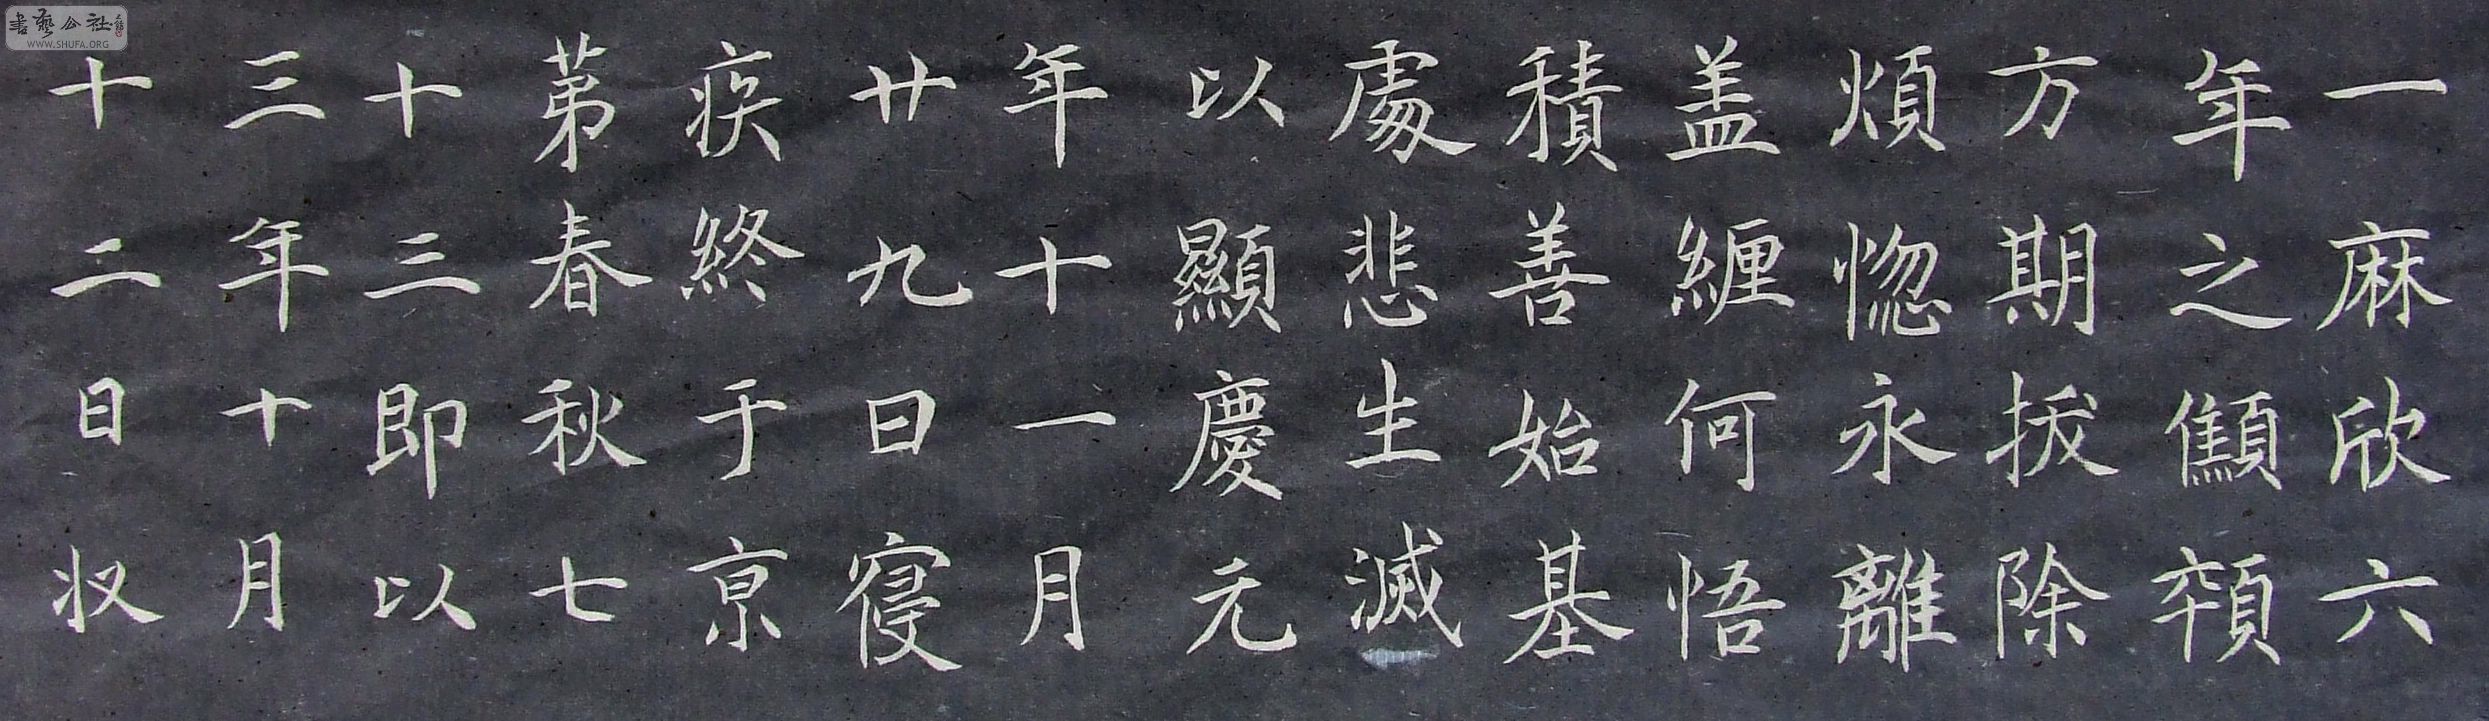 一麻欣六
年之顦顇
方期拔除
煩惚永離
盖纏何悟
積善始基
處悲生滅
以顯慶元
年十一月
廿九日寢
疾終于京
苐春秋七
十三即以
三年十月
十二日收
書藝公社
WWW.SHUFA.ORG